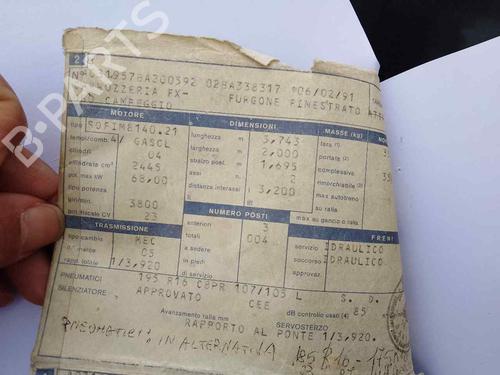 2
N° 0319578A200392 028A338317 *06/02/91
CAMPEGGIO FURGONE FINESTRATO
MOTORE DIMENSIONI MASSE (kg)
tipo SOFIM8140.21 lunghezza m 5,743 tara (1)
tempi/comb. 4/ GASOL larghezza m 2,000 portata (2)
cilindri 04 sbalzo post. m 1,695 complessiva
cilindrata cm³ 2445 assi 2 rimorchiabile (3)
pot. max kW 68,00 distanza interassi 3,200 max autotreno
tipo potenza su ralla
giri/min. 3800 max su gancio o ralla
pot. fiscale CV 23 NUMERO POSTI
TRASMISSIONE anteriori 3 FRENI
tipo cambio MEC totali 004 servizio IDRAULICO
n. marce 05 a sedere soccorso IDRAULICO
rapp. totale 1/3,920 in piedi
di servizio
PNEUMATICI 195 R16 C8PR 107/105 L S. D.
SILENZIATORE APPROVATO CEE dB controllo usati (4) 85
Avanzamento ralla mm SERVOSTERZO
RAPPORTO AL PONTE 1/3,920.
PNEUMATICI IN ALTERNATIVA 185 R16